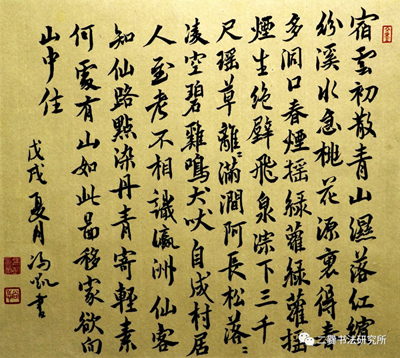 宿雲初散青山濕落紅繽
紛溪水急桃花源裏得春
多洞口春煙摇緑蘿緑蘿摇
煙生絶壁飛泉淙下三千
尺瑶草離〻滿澗阿長松落〻
凌空碧雞鳴犬吠自成村居
人至老不相識瀛洲仙客
知仙路點染丹青寄輕素
何處有山如此圖移家欲向
山中住
戊戌夏月冯凯書
书法研究所